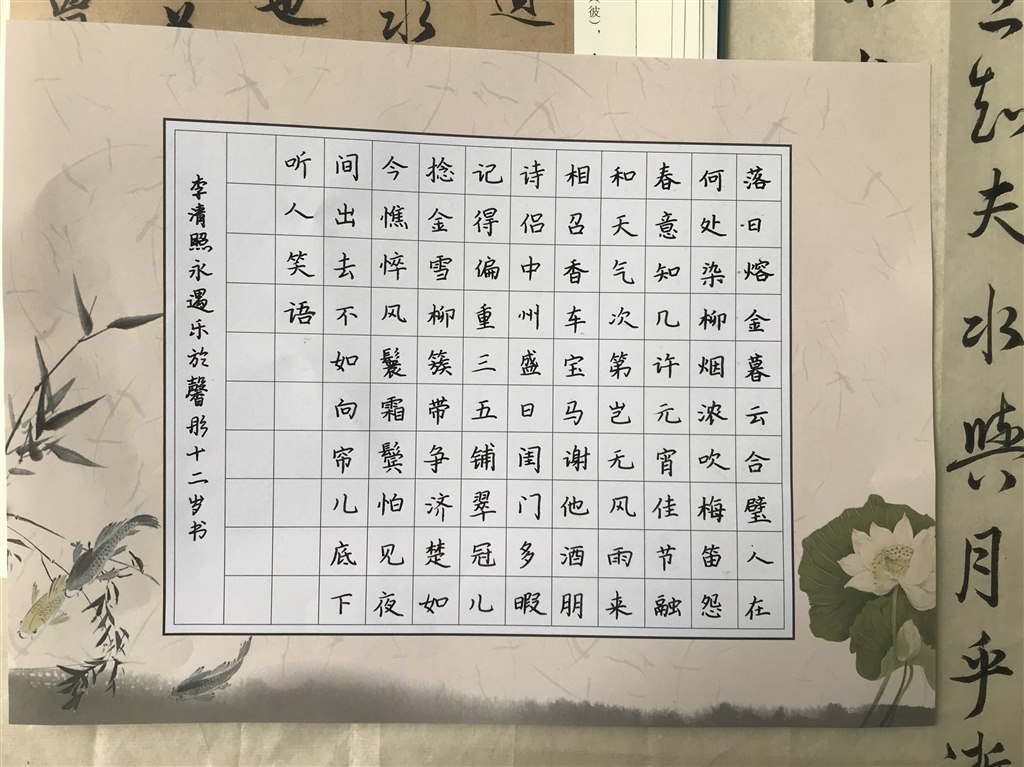 知夫水與月乎
落日熔金暮云合璧人在
何处染柳烟浓吹梅笛怨
春意知几许元宵佳节融
和天气次第岂无风雨来
相召香车宝马谢他酒朋
诗侣中州盛日闺门多暇
记得偏重三五铺翠冠儿
捻金雪柳簇带争济楚如
今憔悴风鬟霜鬓怕见夜
间出去不如向帘儿底下
听人笑语
李清照永遇乐於馨彤十二岁书
彼），
水
也